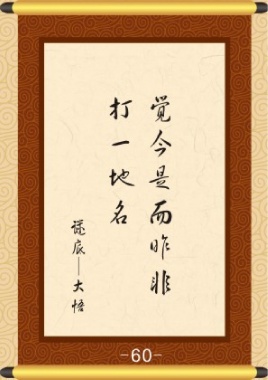 觉今是而昨非
打一地名
谜底——大悟
-60-